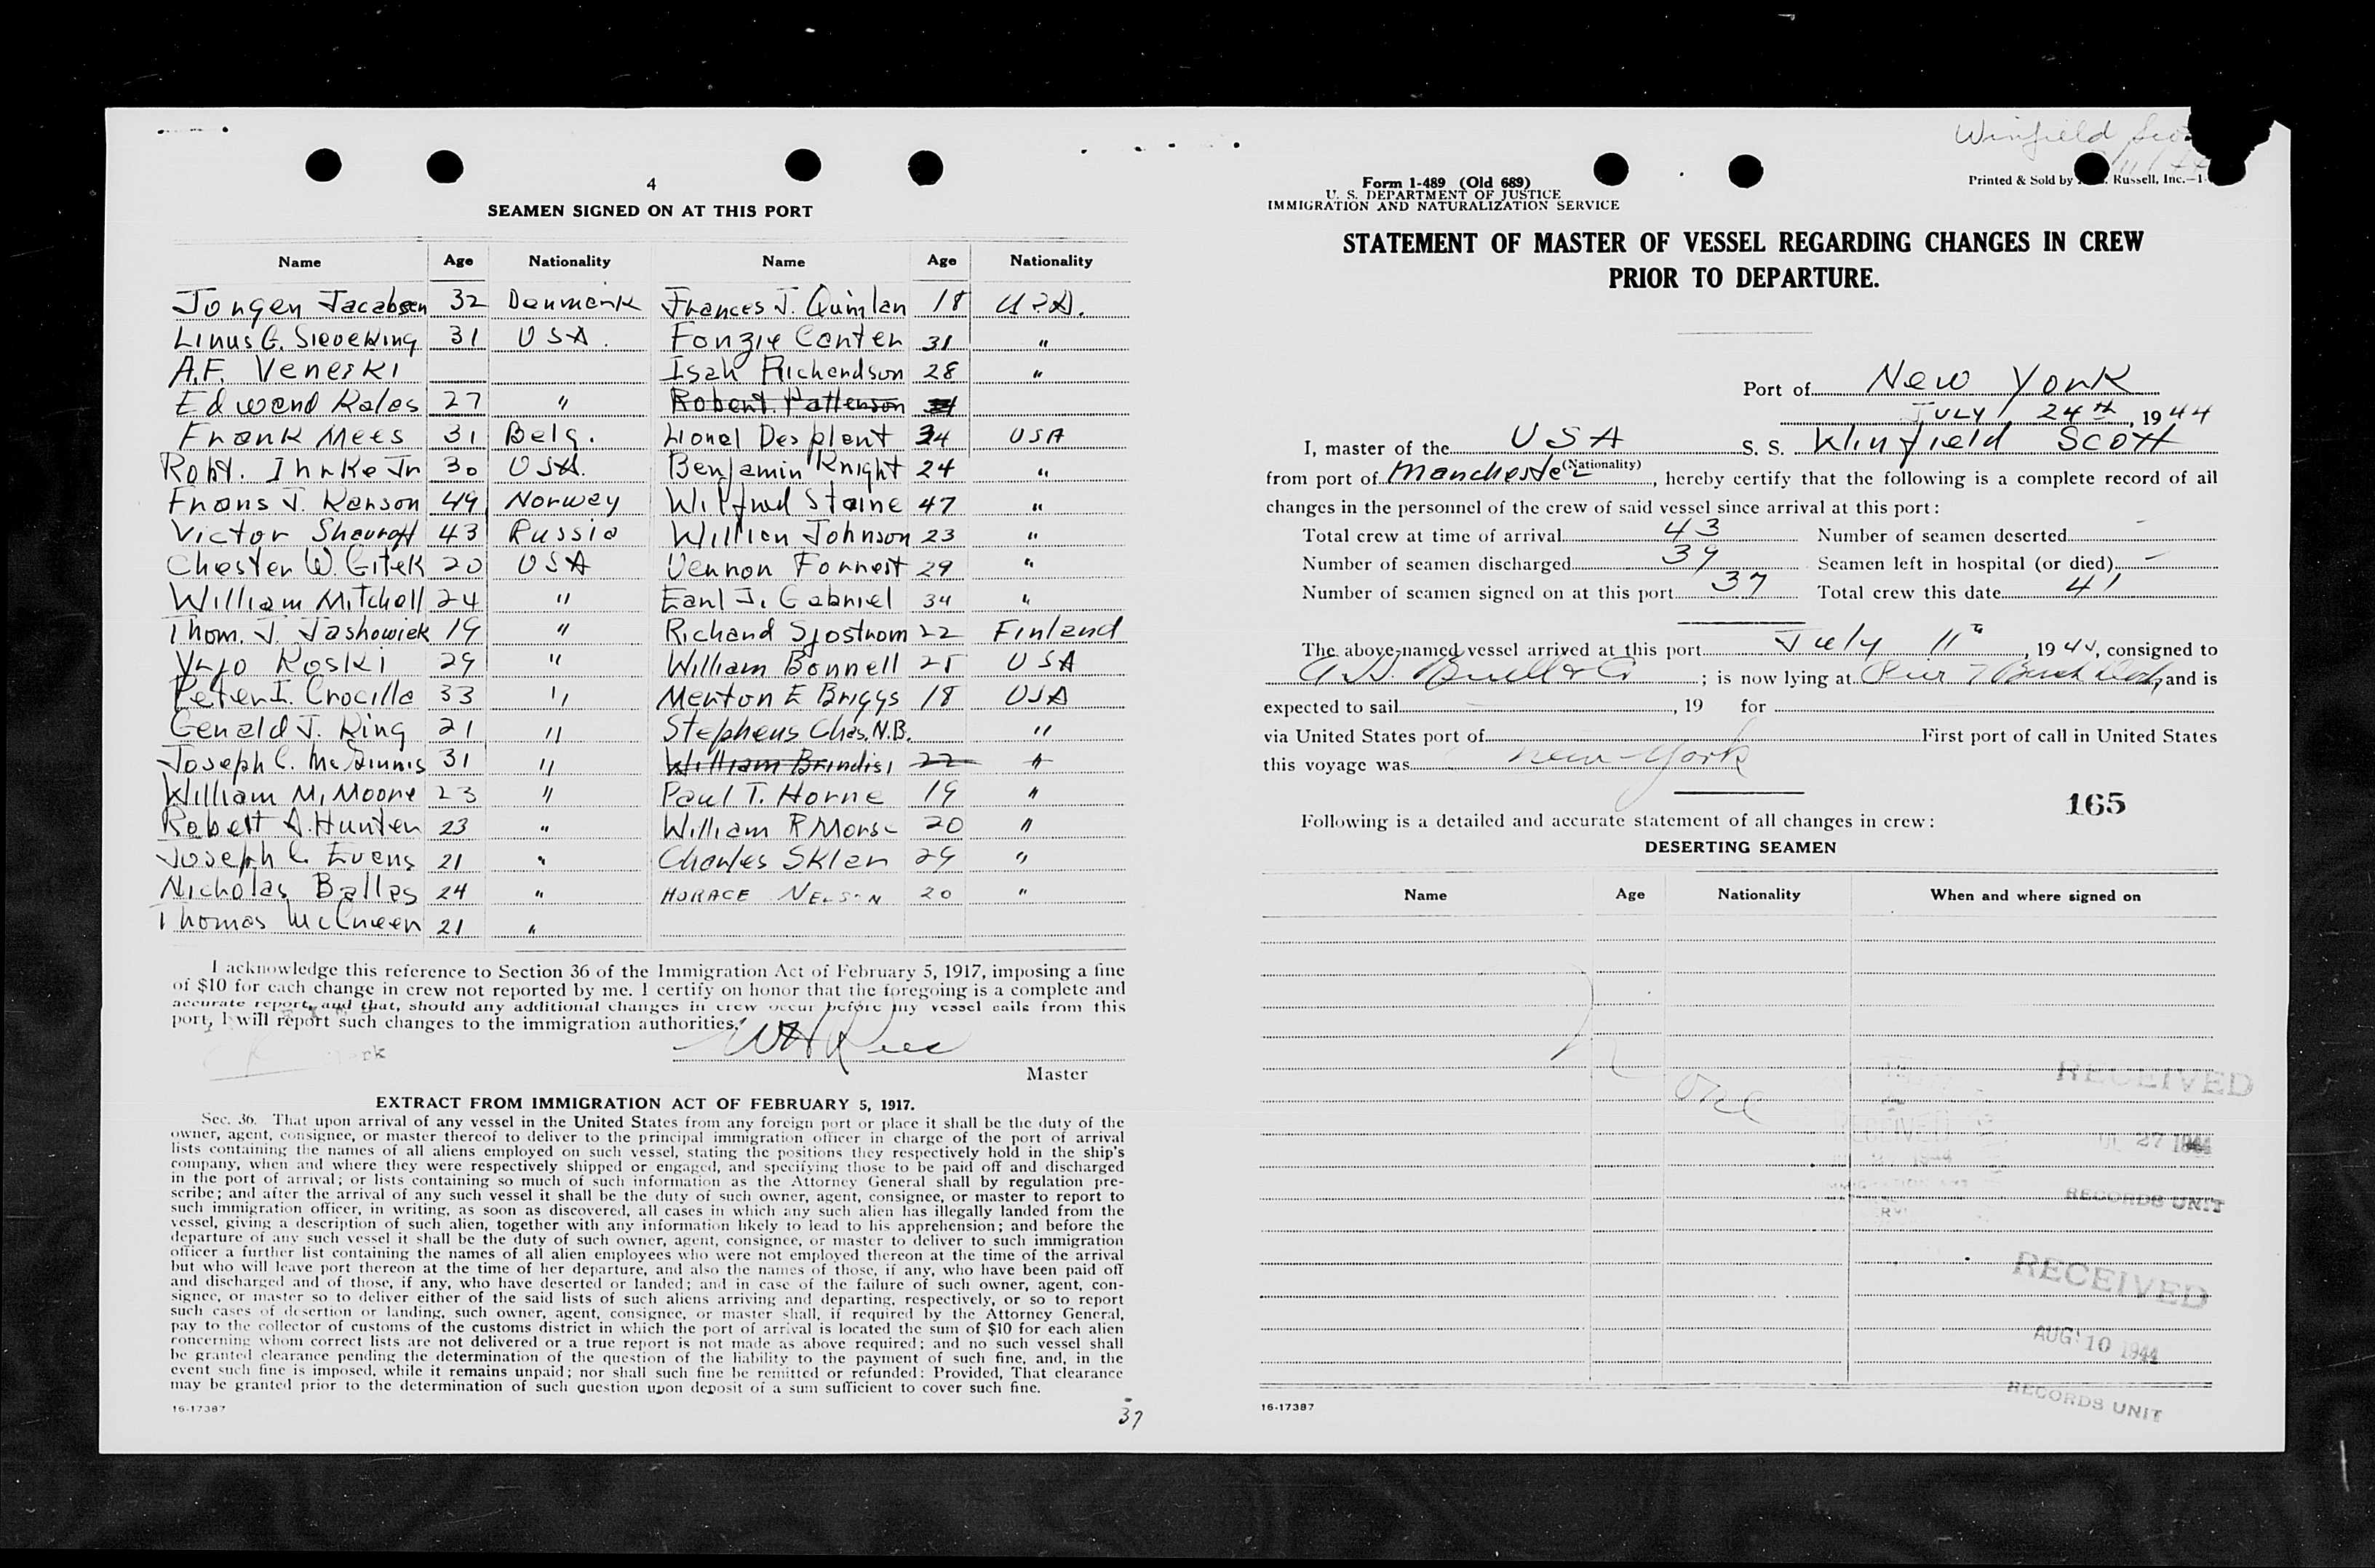 4
SEAMEN SIGNED ON AT THIS PORT
Name Age Nationality Name Age Nationality
Jorgen Jacabsen 32 Denmark Frances J. Quinlan 18 U.S.A.
Linus G. Sieveking 31 USA. Fonzie Canter 31 "
A.F. Veneski Isah Richardson 28 "
Edward Kales 27 " Robert Patterson
Frank Mees 31 Belg. Lionel Desplant 34 USA
Robt. Ihrke Jr 30 USA. Benjamin Knight 24 "
Frans J. Karson 49 Norway Wilfred Staine 47 "
Victor Shavroff 43 Russia William Johnson 23 "
Chester W. Gitek 20 USA Vernon Forrest 29 "
William Mitchell 24 " Earl J. Gabriel 34 "
Thom. J. Jashowiek 19 " Richard Sjostrom 22 Finland
Yrjo Koski 29 " William Bonnell 25 USA
Peter I. Crocilla 33 " Merton E Briggs 18 USA
Gerald J. King 21 " Stephens Chas. N.B. "
Joseph C. McGinnis 31 " William Brindisi 22 "
William M. Moore 23 " Paul T. Horne 19 "
Robert A. Hunter 23 " William R Morse 20 "
Joseph C. Evans 21 " Charles Sklar 29 "
Nicholas Ballas 24 " HORACE NELSON 20 "
Thomas McCueen 21 "
I acknowledge this reference to Section 36 of the Immigration Act of February 5, 1917, imposing a fine
of $10 for each change in crew not reported by me. I certify on honor that the foregoing is a complete and
accurate report, and that, should any additional changes in crew occur before my vessel sails from this
port, I will report such changes to the immigration authorities.
Master
EXTRACT FROM IMMIGRATION ACT OF FEBRUARY 5, 1917.
Sec. 36. That upon arrival of any vessel in the United States from any foreign port or place it shall be the duty of the
owner, agent, consignee, or master thereof to deliver to the principal immigration officer in charge of the port of arrival
lists containing the names of all aliens employed on such vessel, stating the positions they respectively hold in the ship's
company, when and where they were respectively shipped or engaged, and specifying those to be paid off and discharged
in the port of arrival; or lists containing so much of such information as the Attorney General shall by regulation pre-
scribe; and after the arrival of any such vessel it shall be the duty of such owner, agent, consignee, or master to report to
such immigration officer, in writing, as soon as discovered, all cases in which any such alien has illegally landed from the
vessel, giving a description of such alien, together with any information likely to lead to his apprehension; and before the
departure of any such vessel it shall be the duty of such owner, agent, consignee, or master to deliver to such immigration
officer a further list containing the names of all alien employees who were not employed thereon at the time of the arrival
but who will leave port thereon at the time of her departure, and also the names of those, if any, who have been paid off
and discharged and of those, if any, who have deserted or landed; and in case of the failure of such owner, agent, con-
signee, or master so to deliver either of the said lists of such aliens arriving and departing, respectively, or so to report
such cases of desertion or landing, such owner, agent, consignee, or master shall, if required by the Attorney General,
pay to the collector of customs of the customs district in which the port of arrival is located the sum of $10 for each alien
concerning whom correct lists are not delivered or a true report is not made as above required; and no such vessel shall
be granted clearance pending the determination of the question of the liability to the payment of such fine, and, in the
event such fine is imposed, while it remains unpaid; nor shall such fine be remitted or refunded: Provided, That clearance
may be granted prior to the determination of such question upon deposit of a sum sufficient to cover such fine.
16-17387
37
Winfield
Form 1-489 (Old 689)
U. S. DEPARTMENT OF JUSTICE
IMMIGRATION AND NATURALIZATION SERVICE
Printed & Sold by Russell, Inc.
STATEMENT OF MASTER OF VESSEL REGARDING CHANGES IN CREW
PRIOR TO DEPARTURE.
Port of New York
JULY 24th, 1944
I, master of the USA S. S. Winfield Scott
(Nationality)
from port of Manchester, hereby certify that the following is a complete record of all
changes in the personnel of the crew of said vessel since arrival at this port:
Total crew at time of arrival 43 Number of seamen deserted -
Number of seamen discharged 39 Seamen left in hospital (or died) -
Number of seamen signed on at this port 37 Total crew this date 41
The above-named vessel arrived at this port July 11th, 1944, consigned to
; is now lying at Pier 7, and is
expected to sail, 19 for
via United States port of First port of call in United States
this voyage was New York
165
Following is a detailed and accurate statement of all changes in crew:
DESERTING SEAMEN
Name Age Nationality When and where signed on
None
RECEIVED
27 1944
RECORDS UNIT
RECEIVED
AUG 10 1944
RECORDS UNIT
16-17387